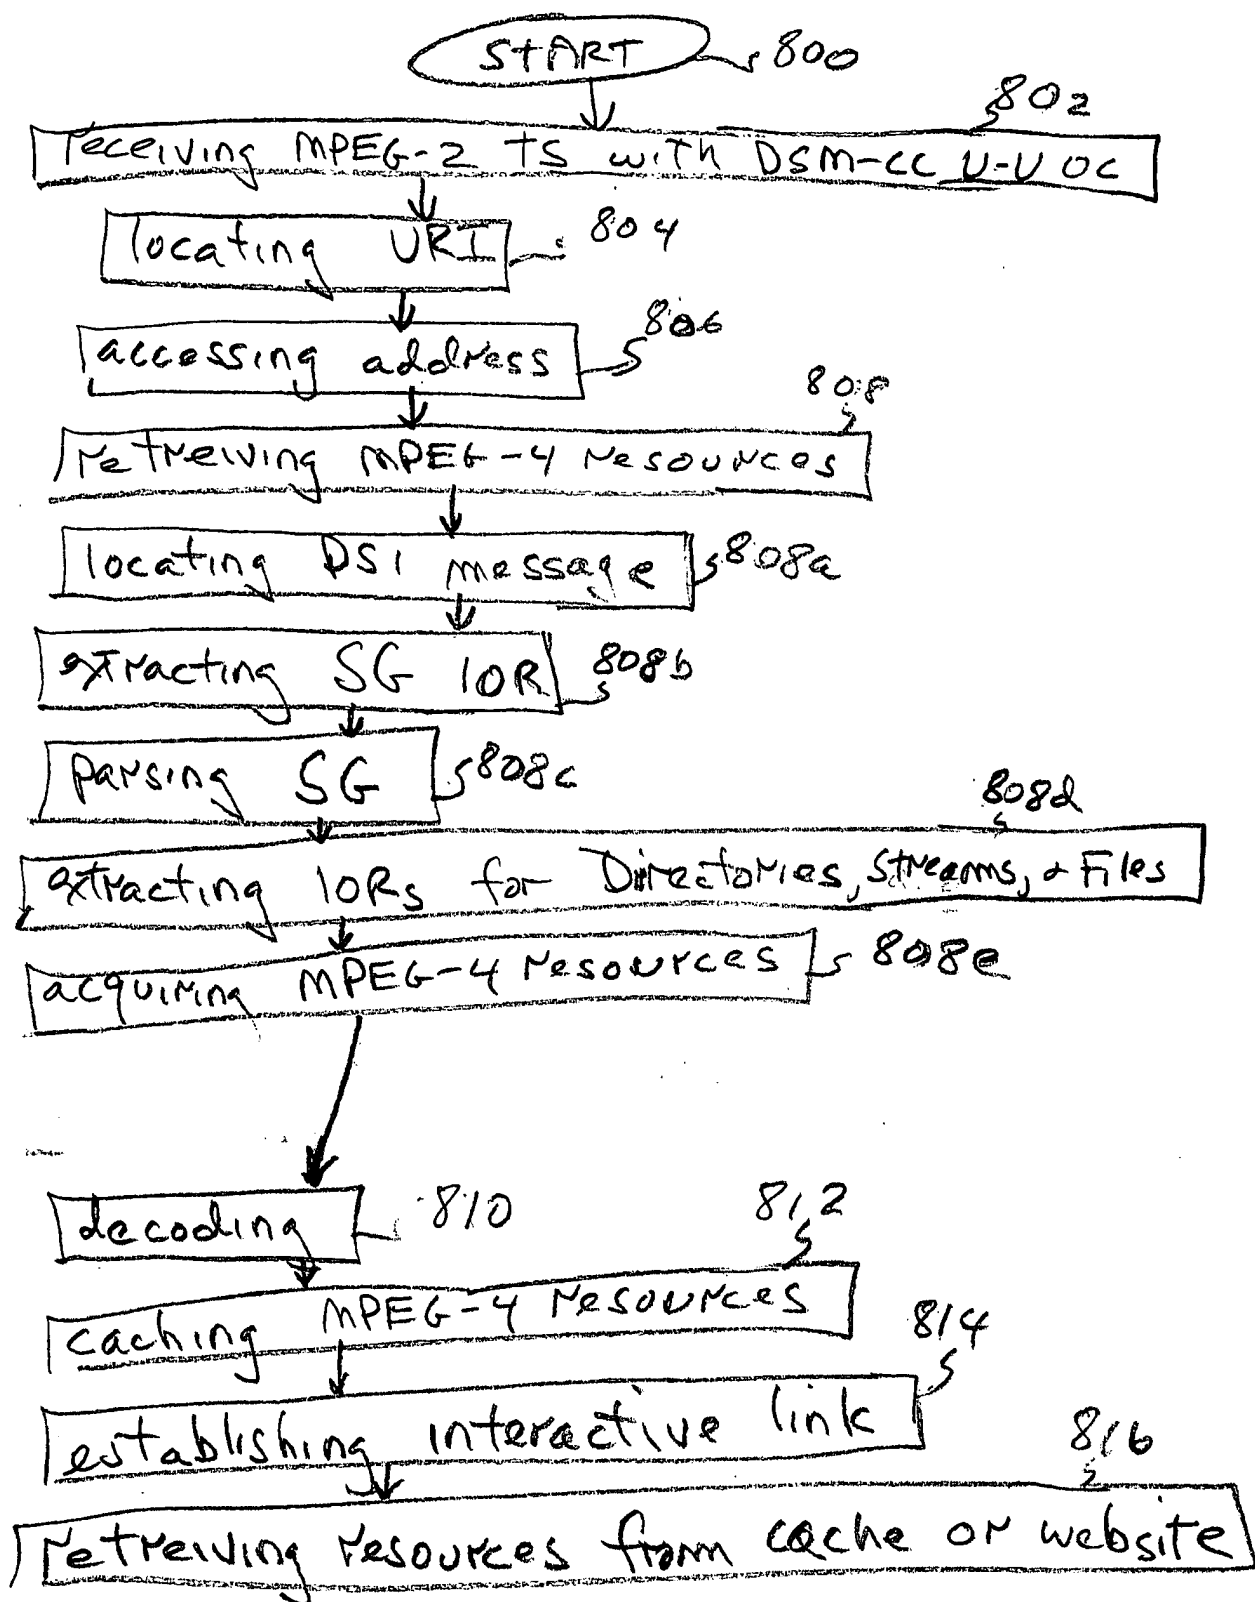 START 800
802
receiving MPEG-2 TS with DSM-CC U-U OC
locating URI 804
accessing address 806
808
retreiving MPEG-4 resources
locating DSI message 808a
extracting SG IOR 808b
parsing SG 808c
808d
extracting IORs for Directories, Streams, & Files
acquiring MPEG-4 resources 808e
decoding 810
812
caching MPEG-4 resources
814
establishing interactive link
816
retreiving resources from cache or website